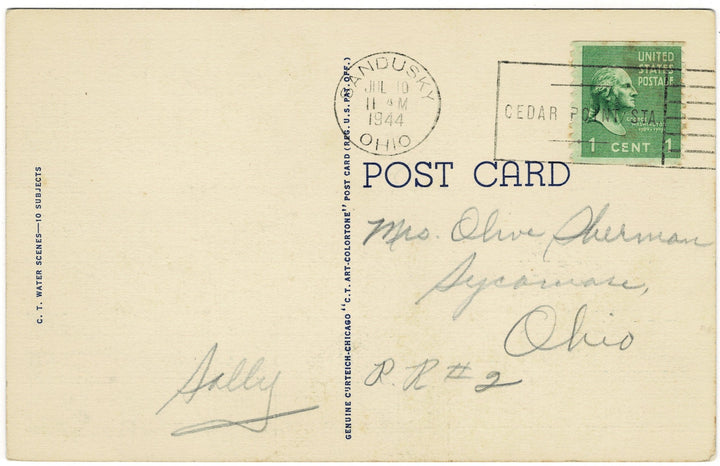 C. T. WATER SCENES—10 SUBJECTS
Sally
GENUINE CURTEICH-CHICAGO "C. T. ART-COLORTONE" POST CARD (REG. U. S. PAT. OFF.)
SANDUSKY
JUL 10
11 AM
1944
OHIO
CEDAR POINT STA.
UNITED
STATES
POSTAGE
1 CENT 1
POST CARD
Mrs. Olive Sherman
Sycamore,
Ohio
R. R # 2